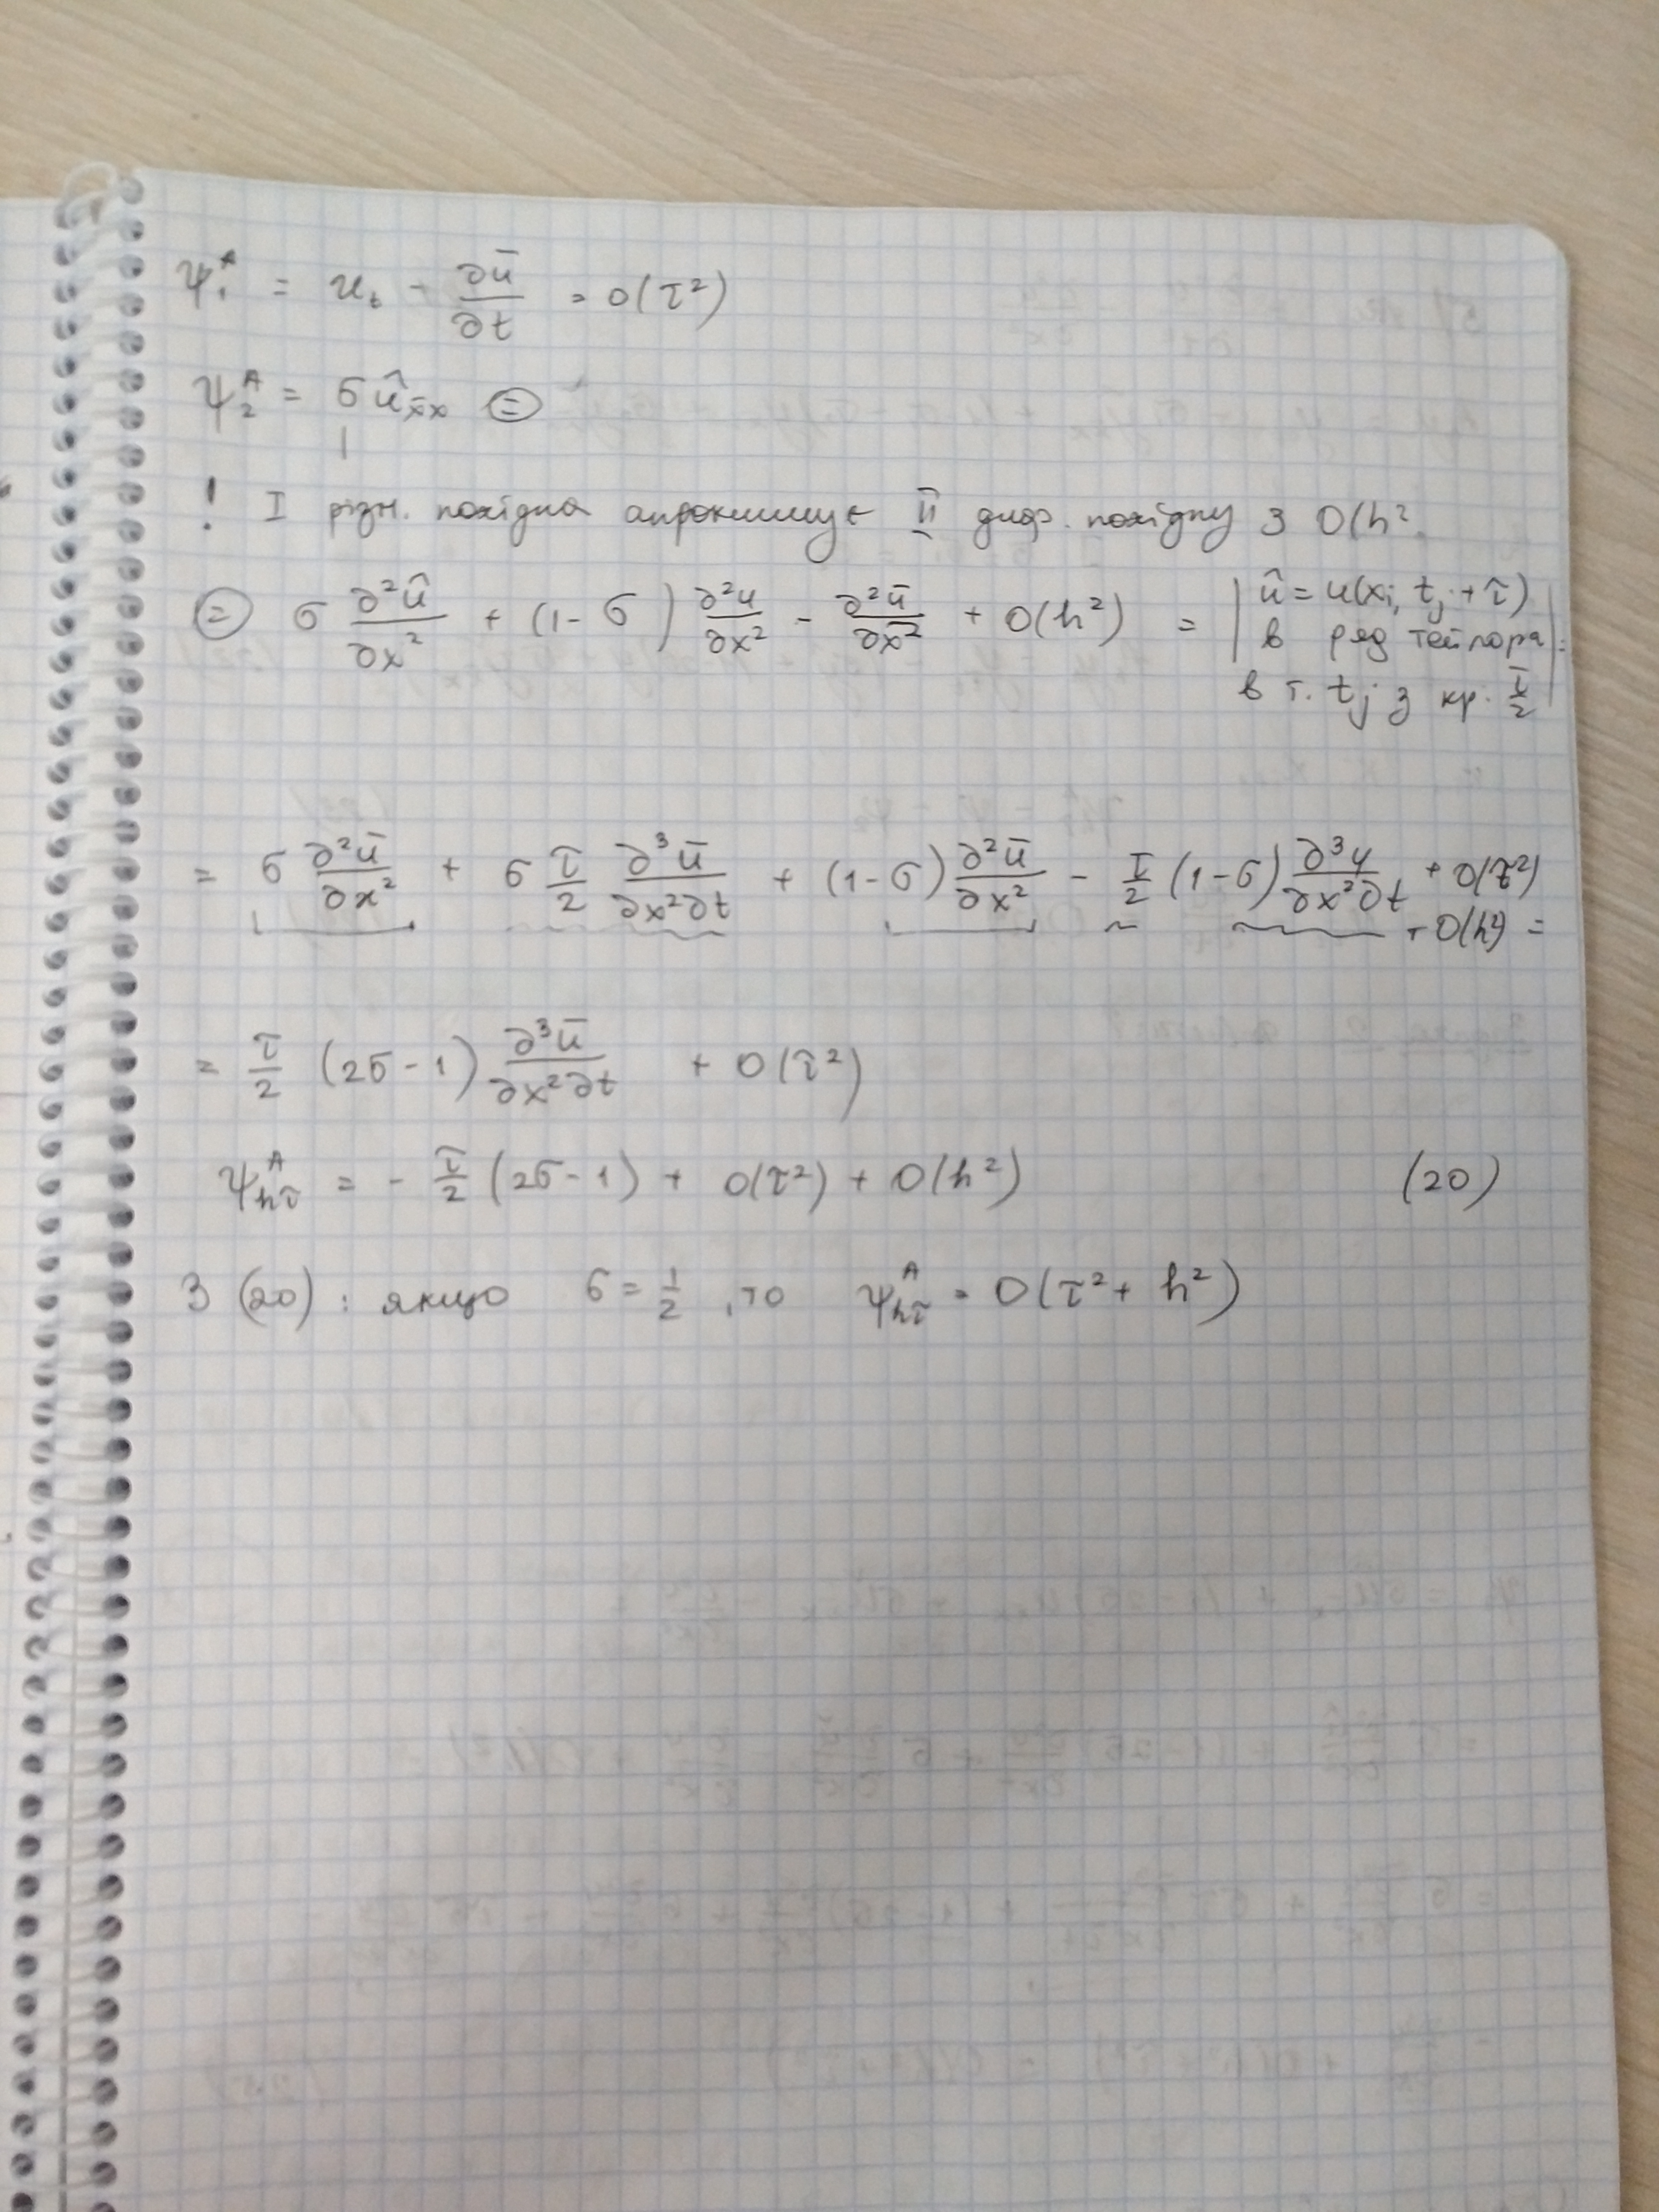 ψ₁ᴬ = u_t - ∂ū/∂t = O(τ²)
ψ₂ᴬ = σ û_x̄x ⊜
! I різн. похідна апроксимує II диф. похідну з O(h²
⊜ σ ∂²û/∂x² + (1-σ) ∂²u/∂x² - ∂²ū/∂x² + O(h²) = | û = u(xᵢ, tⱼ + τ)
в ряд Тейлора | =
в т. tⱼ з кр. τ/2
= σ ∂²ū/∂x² + σ τ/2 ∂³ū/∂x²∂t + (1-σ) ∂²ū/∂x² - τ/2 (1-σ) ∂³u/∂x²∂t + O(τ²)
+ O(h²) =
= τ/2 (2σ-1) ∂³ū/∂x²∂t + O(τ²)
ψ_hτᴬ = - τ/2 (2σ-1) + O(τ²) + O(h²) (20)
З (20) : якщо σ = 1/2 , то ψ_hτᴬ = O(τ² + h²)